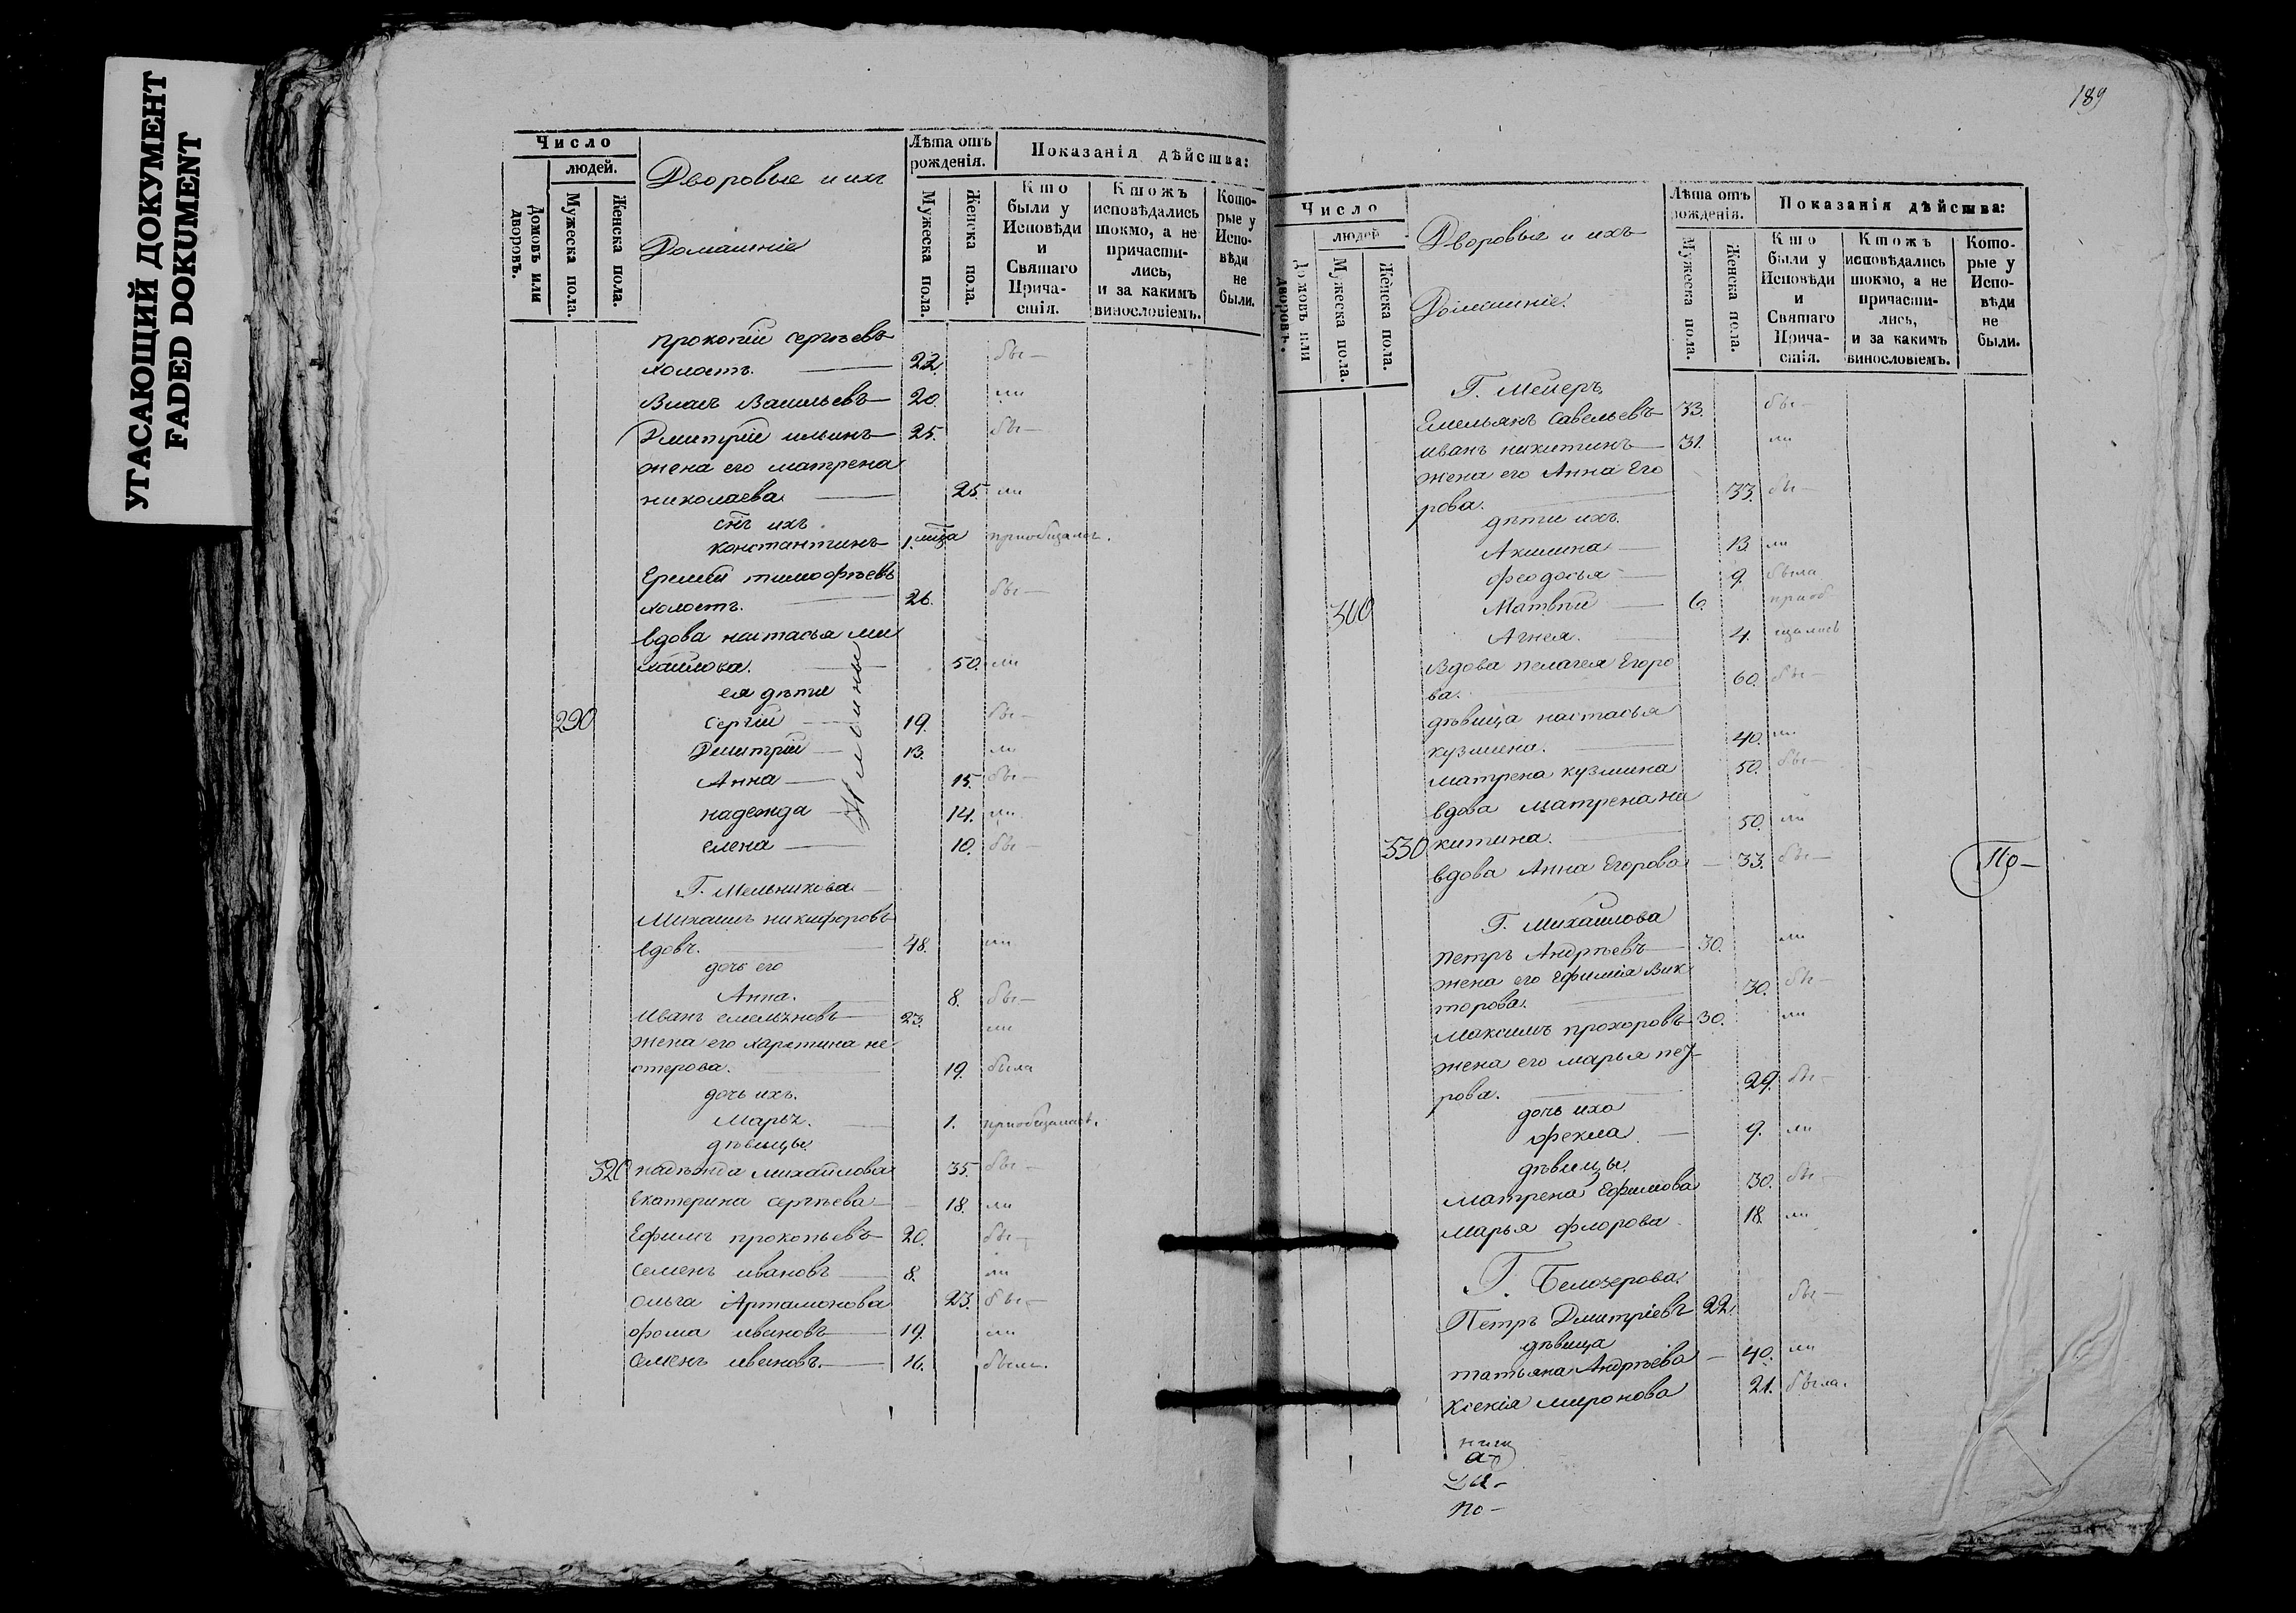 УГАСАЮЩИЙ ДОКУМЕНТ
FADED DOKUMENT
Число
людей.
Домовъ или дворовъ.
Мужеска пола.
Женска пола.
Дворовые и ихъ
Домашніе
Лѣта отъ рожденія.
Мужеска пола.
Женска пола.
Показанія дѣйства:
Кто были у Исповѣди и Святаго Причастія.
Ктожъ исповѣдались токмо, а не причастились, и за какимъ винословіемъ.
Которые у Исповѣди не были.
прокопій сергѣевъ
холостъ. 22. бы—
Власъ Васильевъ 20. ли
Дмитрій ильинъ 25. бы—
жена его матрена
николаева 25. ли
сынъ ихъ
константинъ 1. приобщался.
Еремѣй тимофѣевъ
холостъ. 26. бы—
вдова настасья ми
хайлова. 50. ли
ея дѣти
290 сергій 19. бы—
Димитрій 13. ли
Анна 15. бы—
надежда 14. ли
елена 10. бы—
Г. Мельникова
Михаилъ никифоровъ
вдовъ. 48. ли
дочь его
Анна. 8. бы—
Иванъ 23. ли
жена его харитина не
стерова. 19. была
дочь ихъ.
Марья. 1. приобщалась.
дѣвицы
320 надежда михайлова 35. бы—
Екатерина сергѣева 18. ли
Ефимъ прокопьевъ 20. бы—
семенъ ивановъ 8. ли
ольга Артамонова 23. бы—
фома ивановъ 19. ли
семенъ ивановъ. 16. были.
189
Число
людей
Домовъ или дворовъ.
Мужеска пола.
Женска пола.
Дворовые и ихъ
Домашніе.
Лѣта отъ рожденія.
Мужеска пола.
Женска пола.
Показанія дѣйства:
Кто были у Исповѣди и Святаго Причастія.
Ктожъ исповѣдались токмо, а не причастились, и за какимъ винословіемъ.
Которые у Исповѣди не были.
Г. Мейеръ.
Емельянъ савельевъ 33. бы—
иванъ никитинъ 31. ли
жена его Анна Его
рова. 33. бы—
дѣти ихъ.
Акилина 13. ли
феодосья 9. была
300 Матвѣй 6. приоб
Агнея. 4. щались
Вдова пелагея Егоро
ва. 60. бы—
дѣвица настасья
кузмина. 40. ли
матрена кузмина 50. бы—
вдова матрена ни
330 китина. 50. ли
вдова Анна Егорова 33. бы—
По—
Г. Михайлова
петръ Андрѣевъ 30. ли
жена его Ефимія Вик
торова. 30. бы—
Максимъ прохоровъ 30. ли
жена его марья пет
рова. 29. бы—
дочь ихъ
фекла 9. ли
дѣвицы.
матрена Ефимова 30. бы—
марья флорова 18. ли
Г. Белозерова.
Петръ Дмитріевъ 22. бы—
дѣвица
татьяна Андрѣева 40. ли
ксенія миронова 21. была.
по—